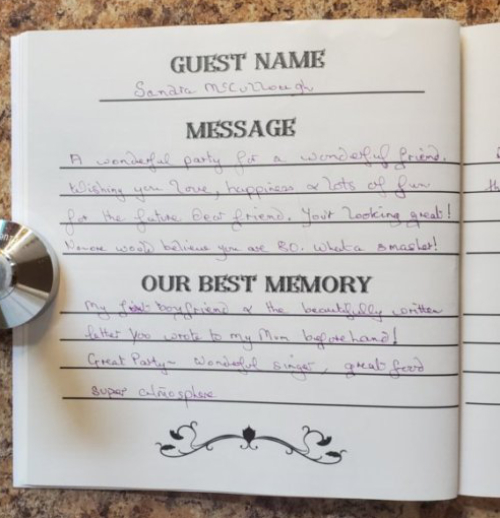 GUEST NAME
Sandra McCullough
MESSAGE
A wonderful party for a wonderful friend.
Wishing you love, happiness & lots of fun
for the future Dear friend. Your looking great!
No-one would believe you are 80. What a smasher!
OUR BEST MEMORY
My first boyfriend & the beautifully written
letter you wrote to my Mom beforehand!
Great Party - Wonderful singer, great food
super atmosphere